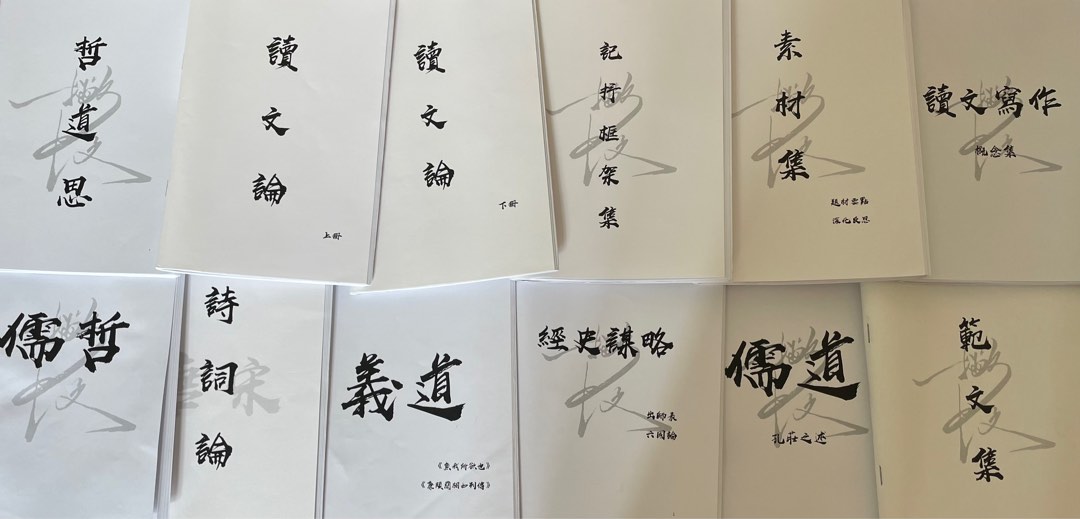 哲道思
讀文論
上冊
讀文論
下冊
記抒框架集
素材集
題材出點
深化反思
讀文寫作
概念集
儒哲
詩詞論
唐宋
義道
《魚我所欲也》
《廉頗藺相如列傳》
經史謀略
出師表
六國論
儒道
孔莊之述
範文集